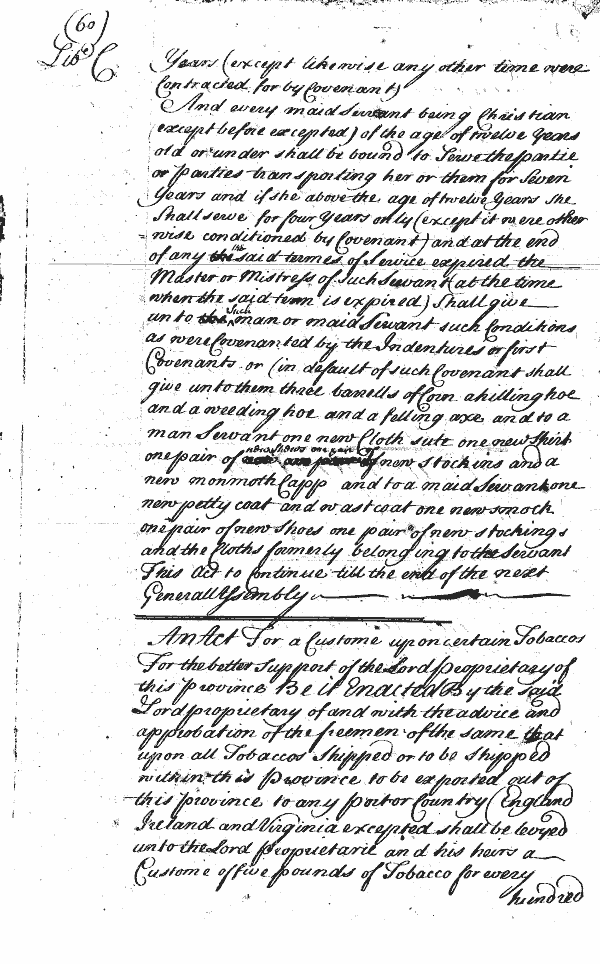 (60)
Lib C
Years (except likewise any other time were
Contracted for by Covenant)
And every maid Servant being Christian
except before excepted) of the age of twelve Years
old or under shall be bound to Serve the partie
or parties transporting her or them for Seven
Years and if she above the age of twelve Years she
Shall serve for four Years only (except it were other
wise conditioned by Covenant) and at the end
of any the said termes of Service expired the
Master or Mistress of Such Servant (at the time
when the said term is expired) Shall give
unto Such man or maid Servant such Conditions
as were Covenanted by the Indentures or first
Covenants or (in default of such Covenant shall
give unto them three barrells of Corn a hilling hoe
and a weeding hoe and a felling axe and to a
man Servant one new Cloth sute one new Shirt
one pair of new Shews one pair of new stockins and a
new monmoth Capp and to a maid Servant one
new petty coat and wastcoat one new smock
one pair of new Shoes one pair of new stockings
and the Cloths formerly belonging to the Servant
This Act to Continue till the end of the next
Generall Assembly
An Act For a Custome upon certain Tobaccos
For the better Support of the Lord Proprietary of
this Province Be it Enacted By the Said
Lord proprietary of and with the advice and
approbation of the freemen of the same that
upon all Tobaccos Shipped or to be shipped
within this Province to be exported out of
this Province to any Port or Country (England
Ireland and Virginia excepted shall be levyed
unto the Lord Proprietarie and his heirs a
Custome of five pounds of Tobacco for every
hundred